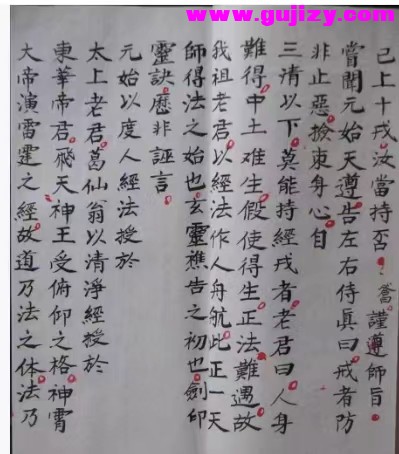 www.gujizy.com
已上十戒汝當持否 答 謹遵師旨
嘗聞元始天尊告左右侍真曰戒者防
非止惡撿束身心自
三清以下莫能持經戒者老君曰人身
難得中土难生假使得生正法難遇故
我祖老君以經法作人舟航此正一天
師得法之始也玄靈樵告之初也劍印
靈訣曆非誣言
元始以度人經法授於
太上老君葛仙翁以清淨經授於
東華帝君飛天神王受俯仰之格神霄
大帝演雷霆之經故道乃法之体法乃